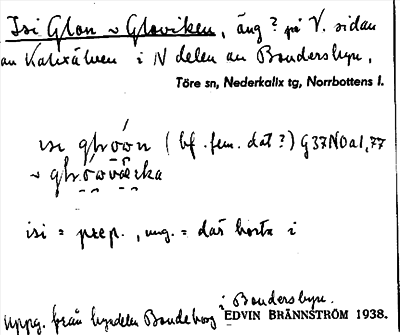 Isi Glon v Gloviken, äng? på V. sidan
av Kalixälven i N delen av Bondersbyn.
Töre sn, Nederkalix tg, Norrbottens l.
isi (bf. fem. dat?) G37NOa1,77
v
isi = prep., ung. = där borta i
Uppg. från byadelen Bondeborg i Bondersbyn.
EDVIN BRÄNNSTRÖM 1938.